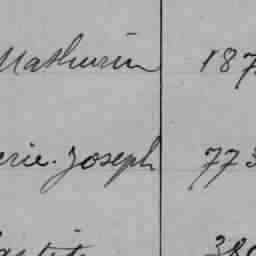 Mathurin 187
erie. Joseph 773
380